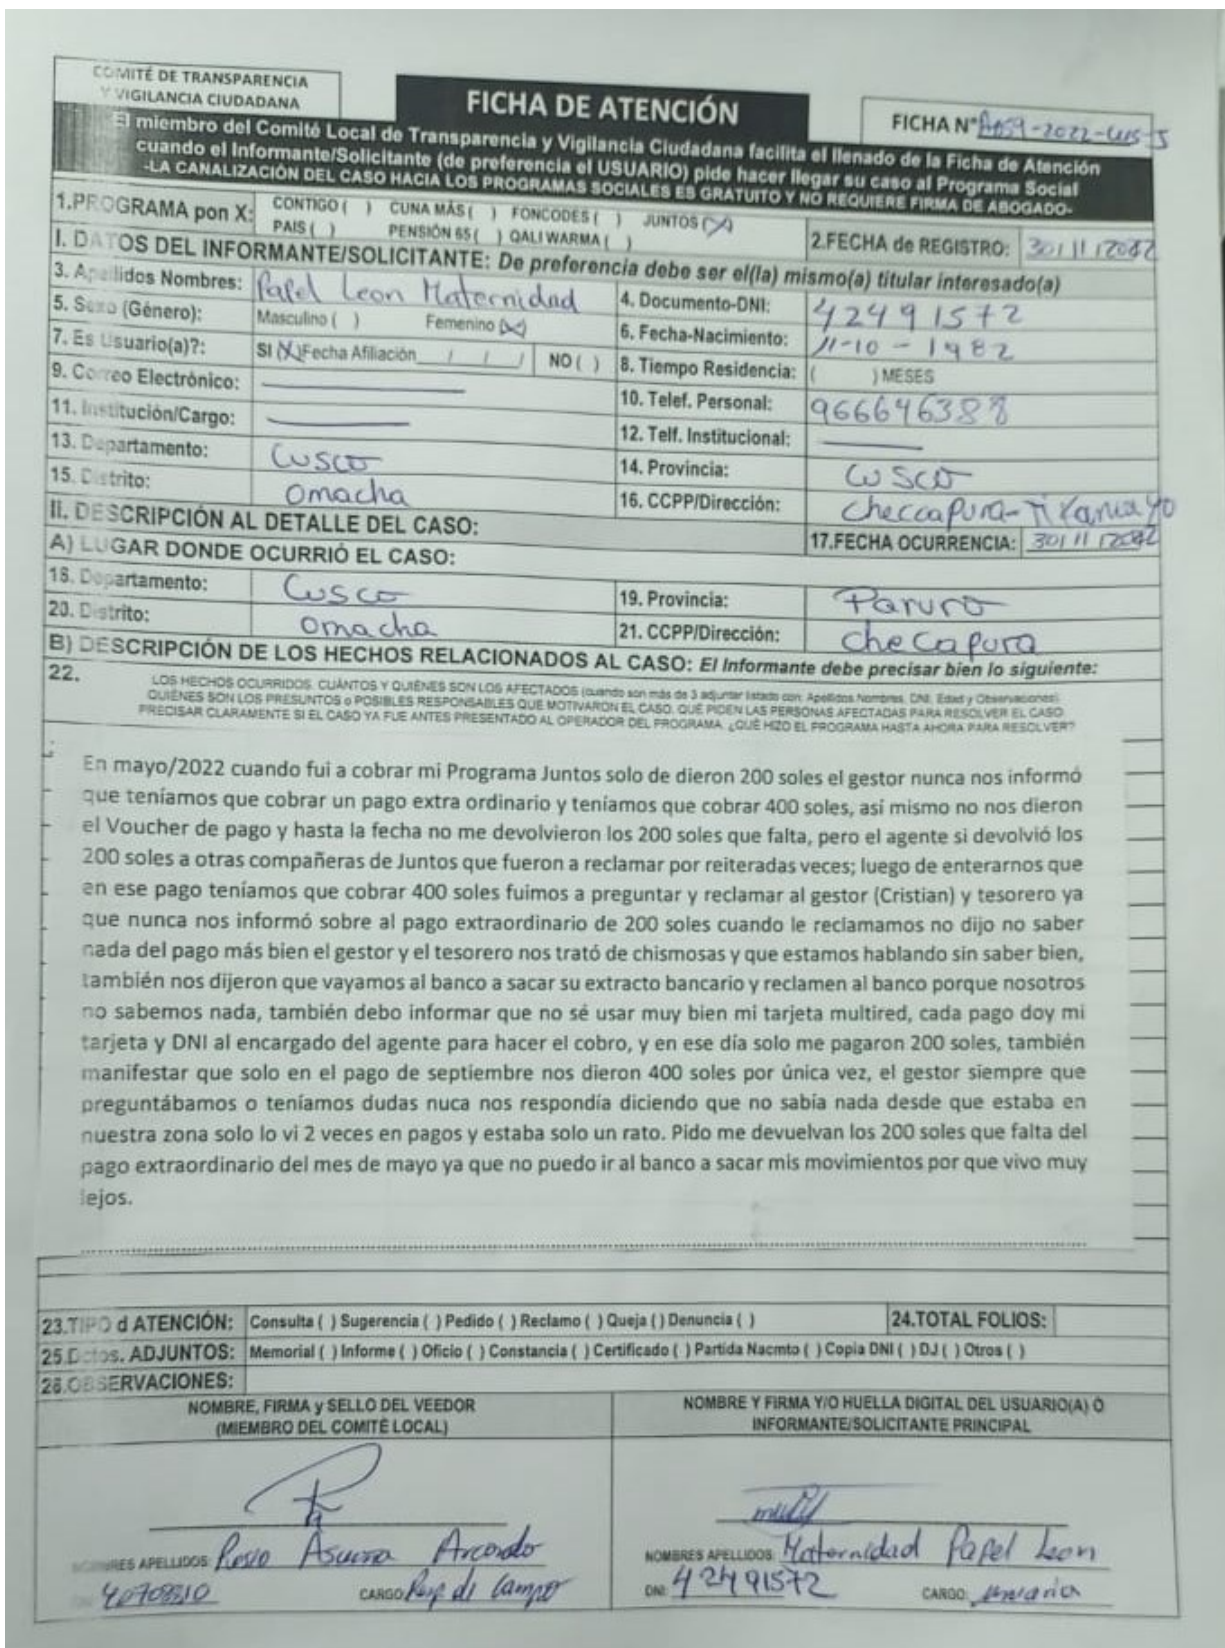 COMITÉ DE TRANSPARENCIA
Y VIGILANCIA CIUDADANA
FICHA DE ATENCIÓN
FICHA N°
El miembro del Comité Local de Transparencia y Vigilancia Ciudadana facilita el llenado de la Ficha de Atención
cuando el Informante/Solicitante (de preferencia el USUARIO) pide hacer llegar su caso al Programa Social
-LA CANALIZACIÓN DEL CASO HACIA LOS PROGRAMAS SOCIALES ES GRATUITO Y NO REQUIERE FIRMA DE ABOGADO-
1.PROGRAMA pon X: CONTIGO ( ) CUNA MÁS ( ) FONCODES ( ) JUNTOS (X)
PAIS ( ) PENSIÓN 65 ( ) QALI WARMA ( )
2.FECHA de REGISTRO: 30/11/2022
I. DATOS DEL INFORMANTE/SOLICITANTE: De preferencia debe ser el(la) mismo(a) titular interesado(a)
3. Apellidos Nombres: Papel Leon Maternidad 4. Documento-DNI: 42491572
5. Sexo (Género): Masculino ( ) Femenino (X) 6. Fecha-Nacimiento: 11-10-1982
7. Es Usuario(a)?: SI (X) Fecha Afiliación / / / NO ( ) 8. Tiempo Residencia: ( ) MESES
9. Correo Electrónico: 10. Telef. Personal: 966646388
11. Institución/Cargo: 12. Telf. Institucional:
13. Departamento: Cusco 14. Provincia: Cusco
15. Distrito: Omacha 16. CCPP/Dirección: Checcapura-
II. DESCRIPCIÓN AL DETALLE DEL CASO: 17.FECHA OCURRENCIA: 30/11/2022
A) LUGAR DONDE OCURRIÓ EL CASO:
18. Departamento: Cusco 19. Provincia: Paruro
20. Distrito: Omacha 21. CCPP/Dirección: Checapura
B) DESCRIPCIÓN DE LOS HECHOS RELACIONADOS AL CASO: El Informante debe precisar bien lo siguiente:
22. LOS HECHOS OCURRIDOS. CUÁNTOS Y QUIÉNES SON LOS AFECTADOS (cuando son más de 3 adjuntar listado con: Apellidos Nombres, DNI, Edad y Observaciones).
QUIÉNES SON LOS PRESUNTOS o POSIBLES RESPONSABLES QUE MOTIVARON EL CASO. QUÉ PIDEN LAS PERSONAS AFECTADAS PARA RESOLVER EL CASO.
PRECISAR CLARAMENTE SI EL CASO YA FUE ANTES PRESENTADO AL OPERADOR DEL PROGRAMA. ¿QUÉ HIZO EL PROGRAMA HASTA AHORA PARA RESOLVER?
En mayo/2022 cuando fui a cobrar mi Programa Juntos solo de dieron 200 soles el gestor nunca nos informó
que teníamos que cobrar un pago extra ordinario y teníamos que cobrar 400 soles, así mismo no nos dieron
el Voucher de pago y hasta la fecha no me devolvieron los 200 soles que falta, pero el agente si devolvió los
200 soles a otras compañeras de Juntos que fueron a reclamar por reiteradas veces; luego de enterarnos que
en ese pago teníamos que cobrar 400 soles fuimos a preguntar y reclamar al gestor (Cristian) y tesorero ya
que nunca nos informó sobre al pago extraordinario de 200 soles cuando le reclamamos no dijo no saber
nada del pago más bien el gestor y el tesorero nos trató de chismosas y que estamos hablando sin saber bien,
también nos dijeron que vayamos al banco a sacar su extracto bancario y reclamen al banco porque nosotros
no sabemos nada, también debo informar que no sé usar muy bien mi tarjeta multired, cada pago doy mi
tarjeta y DNI al encargado del agente para hacer el cobro, y en ese día solo me pagaron 200 soles, también
manifestar que solo en el pago de septiembre nos dieron 400 soles por única vez, el gestor siempre que
preguntábamos o teníamos dudas nuca nos respondía diciendo que no sabía nada desde que estaba en
nuestra zona solo lo vi 2 veces en pagos y estaba solo un rato. Pido me devuelvan los 200 soles que falta del
pago extraordinario del mes de mayo ya que no puedo ir al banco a sacar mis movimientos por que vivo muy
lejos.
23.TIPO d ATENCIÓN: Consulta ( ) Sugerencia ( ) Pedido ( ) Reclamo ( ) Queja ( ) Denuncia ( ) 24.TOTAL FOLIOS:
25.Dctos. ADJUNTOS: Memorial ( ) Informe ( ) Oficio ( ) Constancia ( ) Certificado ( ) Partida Nacmto ( ) Copia DNI ( ) DJ ( ) Otros ( )
26.OBSERVACIONES:
NOMBRE, FIRMA y SELLO DEL VEEDOR
(MIEMBRO DEL COMITÉ LOCAL)
NOMBRE Y FIRMA Y/O HUELLA DIGITAL DEL USUARIO(A) O
INFORMANTE/SOLICITANTE PRINCIPAL
NOMBRES APELLIDOS:
CARGO: Resp de Campo
NOMBRES APELLIDOS: Maternidad Papel Leon
DNI: 42491572 CARGO: usuaria